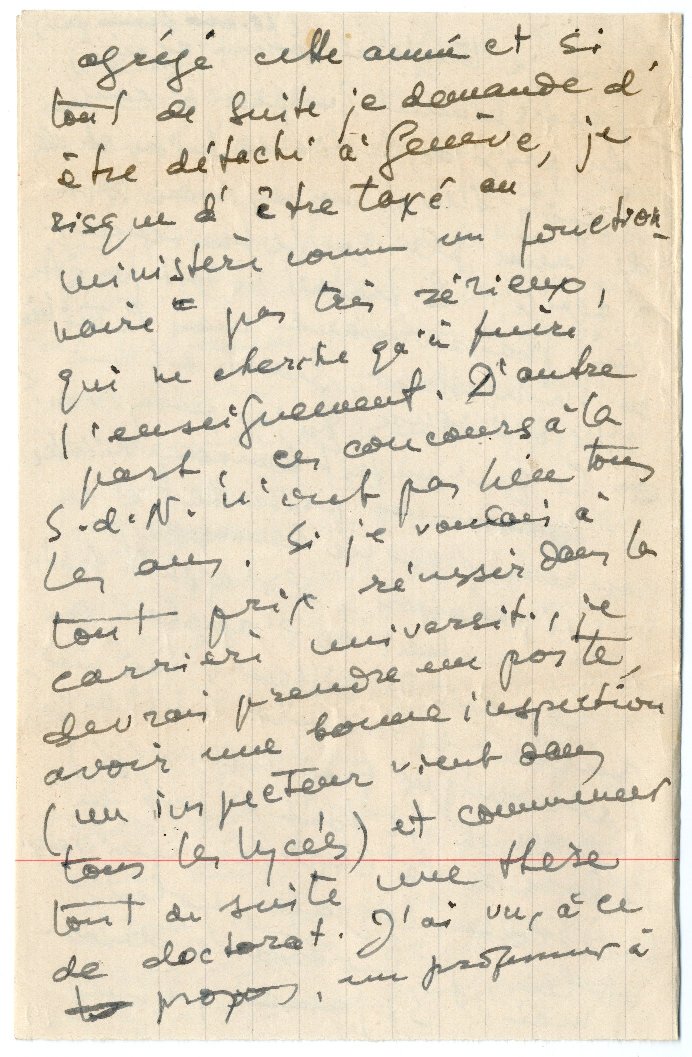 agrégé cette année et si
tout de suite je demande d'
être détaché à Genève, je
risque d'être taxé au
ministère comme un fonction-
naire pas très sérieux,
qui ne cherche qu'à fuire
l'enseignement. D'autre
part, ces concours à la
S.d.N. n'ont pas lieu tous
les ans. Si je voulais à
tout prix réussir dans la
carrière universit., je
devrais prendre un poste,
avoir une bonne inspection
(un inspecteur vient dans
tous les lycées) et commencer
tout de suite une thèse
de doctorat. J'ai vu, à ce
propos, un professeur à